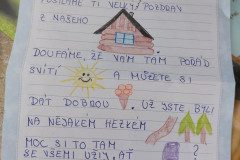 POSÍLÁME TI VELKÝ POZDRAV
Z NAŠEHO
DOUFÁME, ŽE VÁM TAM POŘÁD
SVÍTÍ A MŮŽETE SI
DÁT DOBROU . UŽ JSTE BYLI
NA NĚJAKÉM HEZKÉM
MOC SI TO TAM
SE VŠEMI UŽIJ, AŤ